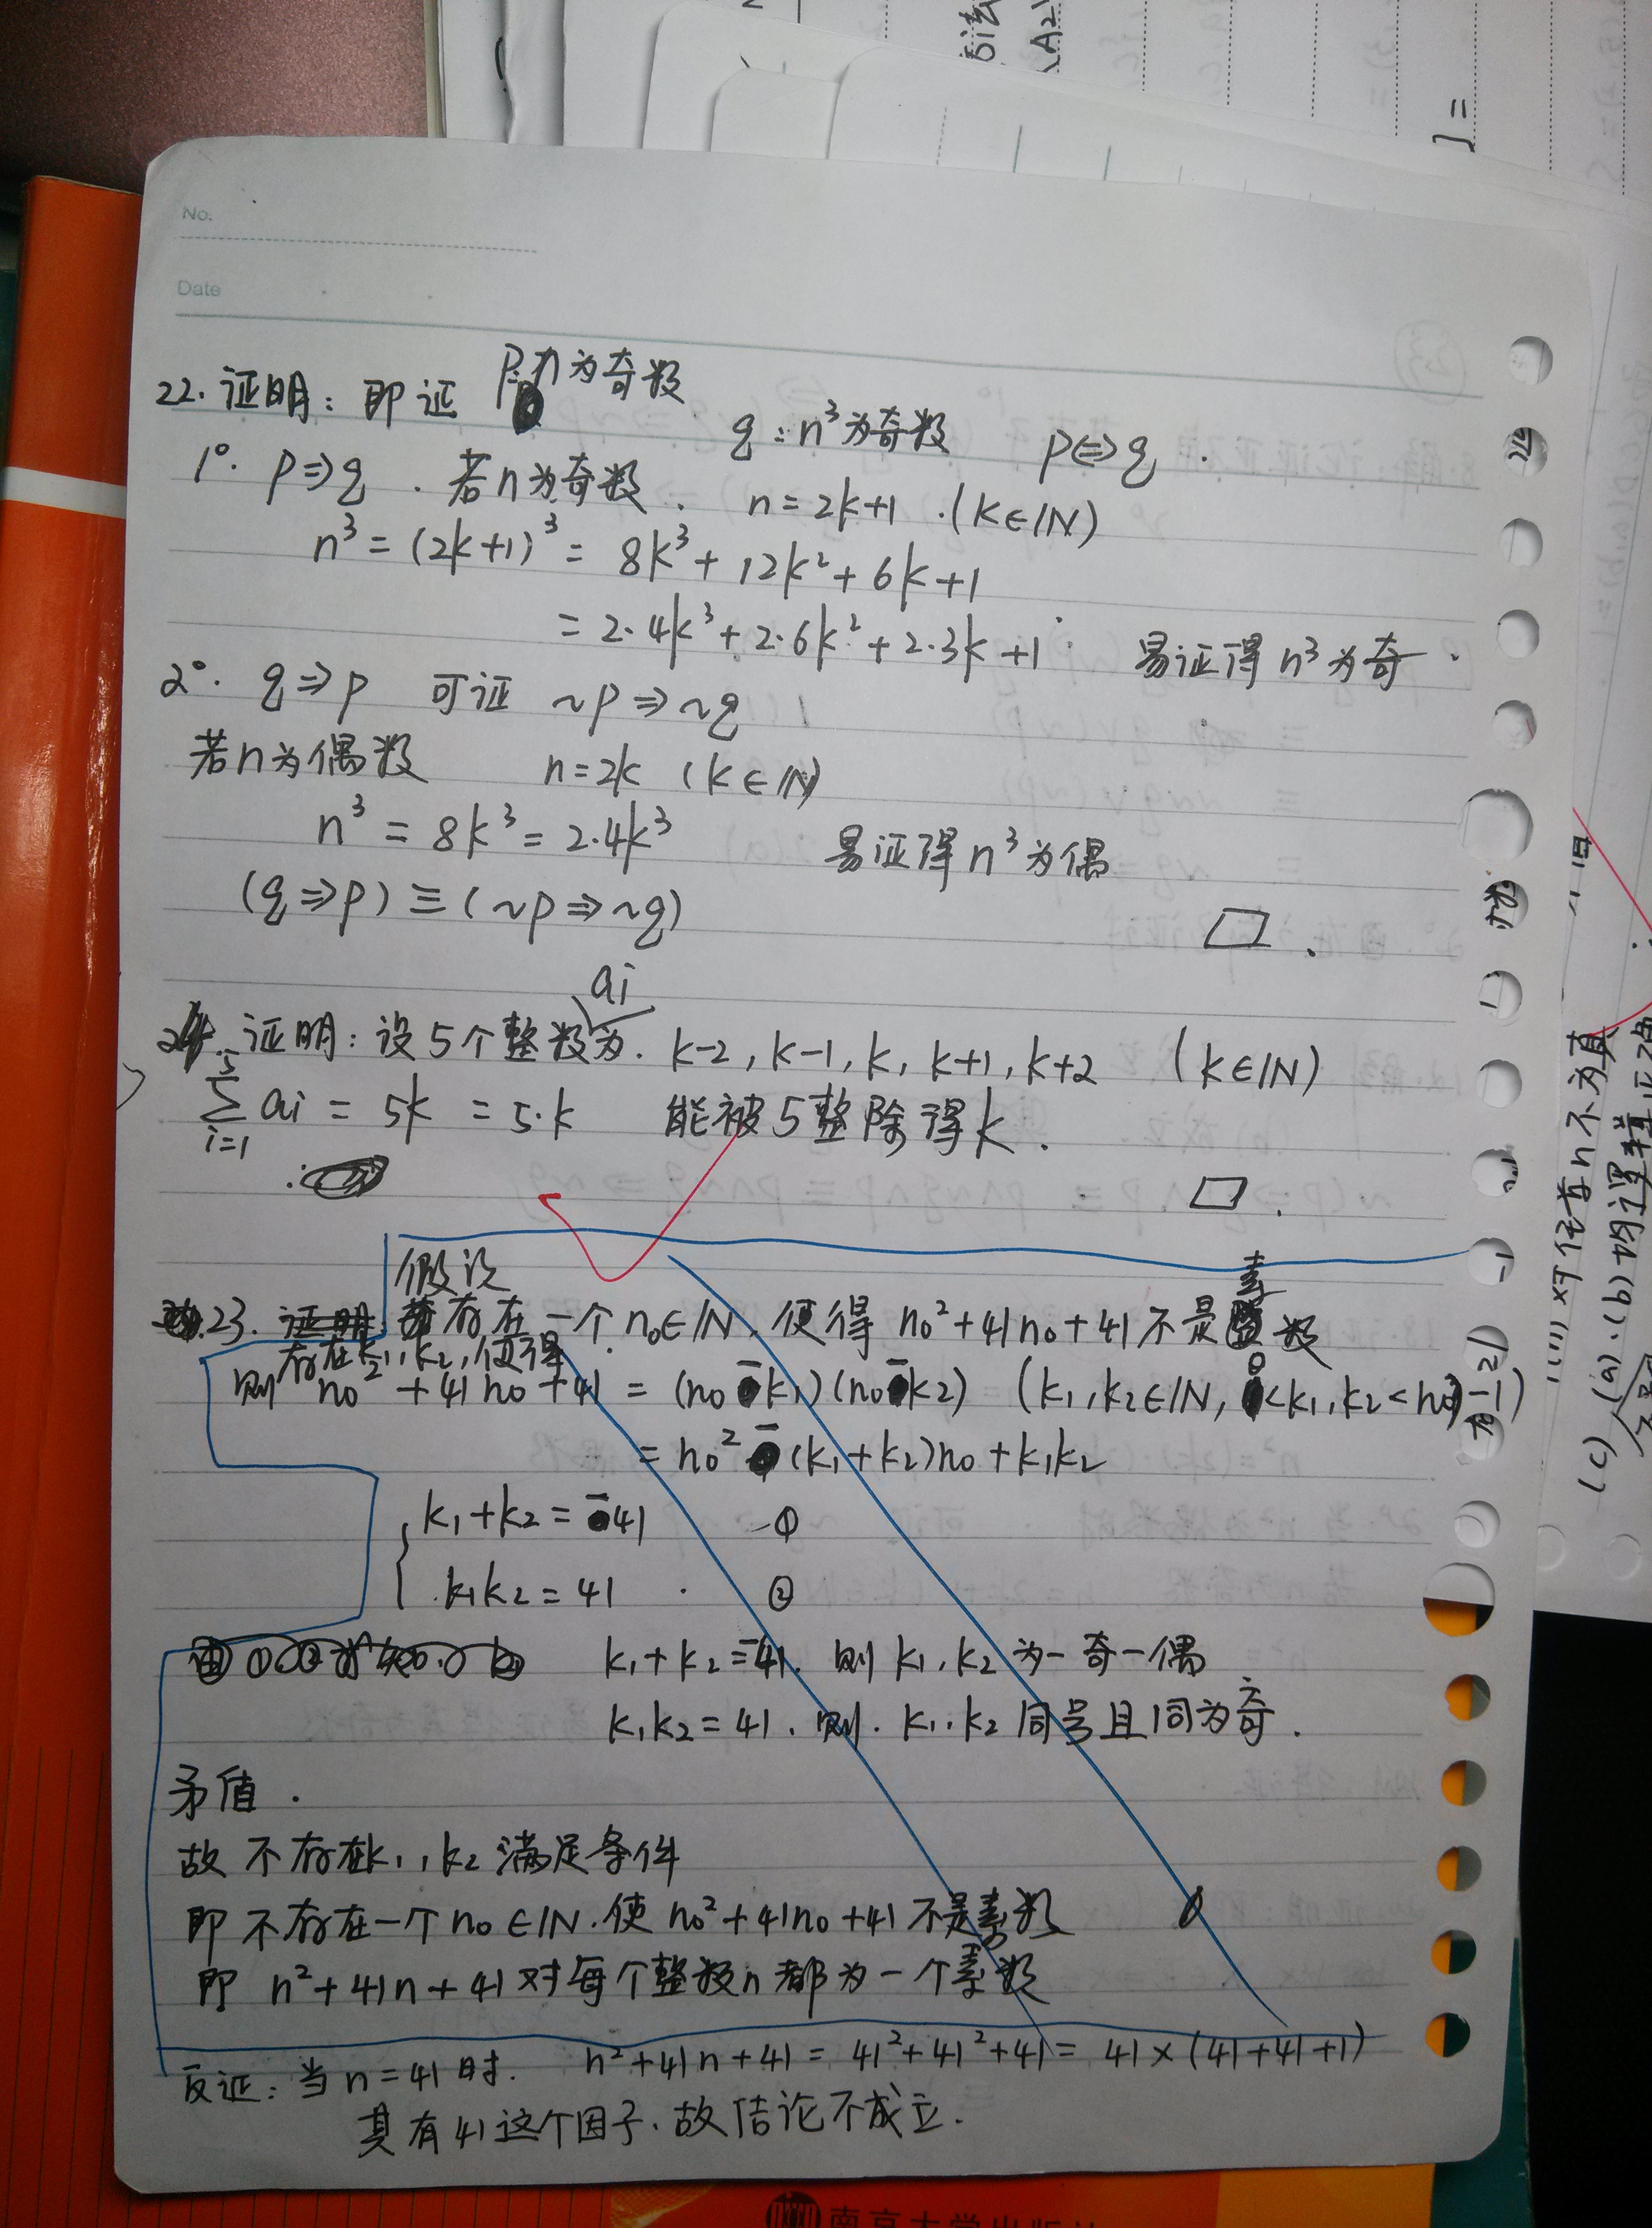 No.
Date
22. 证明: 即证 P: n为奇数
q: n³为奇数 p⇔q.
1°. p⇒q. 若n为奇数. n=2k+1.(k∈IN)
n³=(2k+1)³= 8k³+12k²+6k+1
= 2·4k³+2·6k²+2·3k+1 易证得n³为奇.
2°. q⇒p 可证 ~p⇒~q
若n为偶数 n=2k (k∈IN)
n³=8k³=2·4k³ 易证得n³为偶
(q⇒p)≡(~p⇒~q) □.
24. 证明: 设5个整数ai为. k-2, k-1, k, k+1, k+2 (k∈IN)
5∑i=1 ai = 5k = 5·k 能被5整除得k.
□.
假设
23. 证明: 若存在一个n₀∈IN, 使得 n₀²+41n₀+41不是素数
存在k₁,k₂,使得
则 n₀²+41n₀+41 = (n₀-k₁)(n₀-k₂) (k₁,k₂∈IN, 0<k₁,k₂<n₀
= n₀²-(k₁+k₂)n₀+k₁k₂
k₁+k₂=-41 ①
k₁k₂=41. ②
k₁+k₂=-41. 则 k₁,k₂为一奇一偶
k₁k₂=41. 则. k₁,k₂同号且同为奇.
矛值.
故 不存在k₁,k₂满足条件
即 不存在一个n₀∈IN.使 n₀²+41n₀+41不是素数
即 n²+41n+41对每个整数n都为一个素数
反证: 当n=41时. n²+41n+41= 41²+41²+41= 41×(41+41+1)
其有41这个因子.故结论不成立.
对任意n不为真
(c) (a).(b)
南京大学出版社